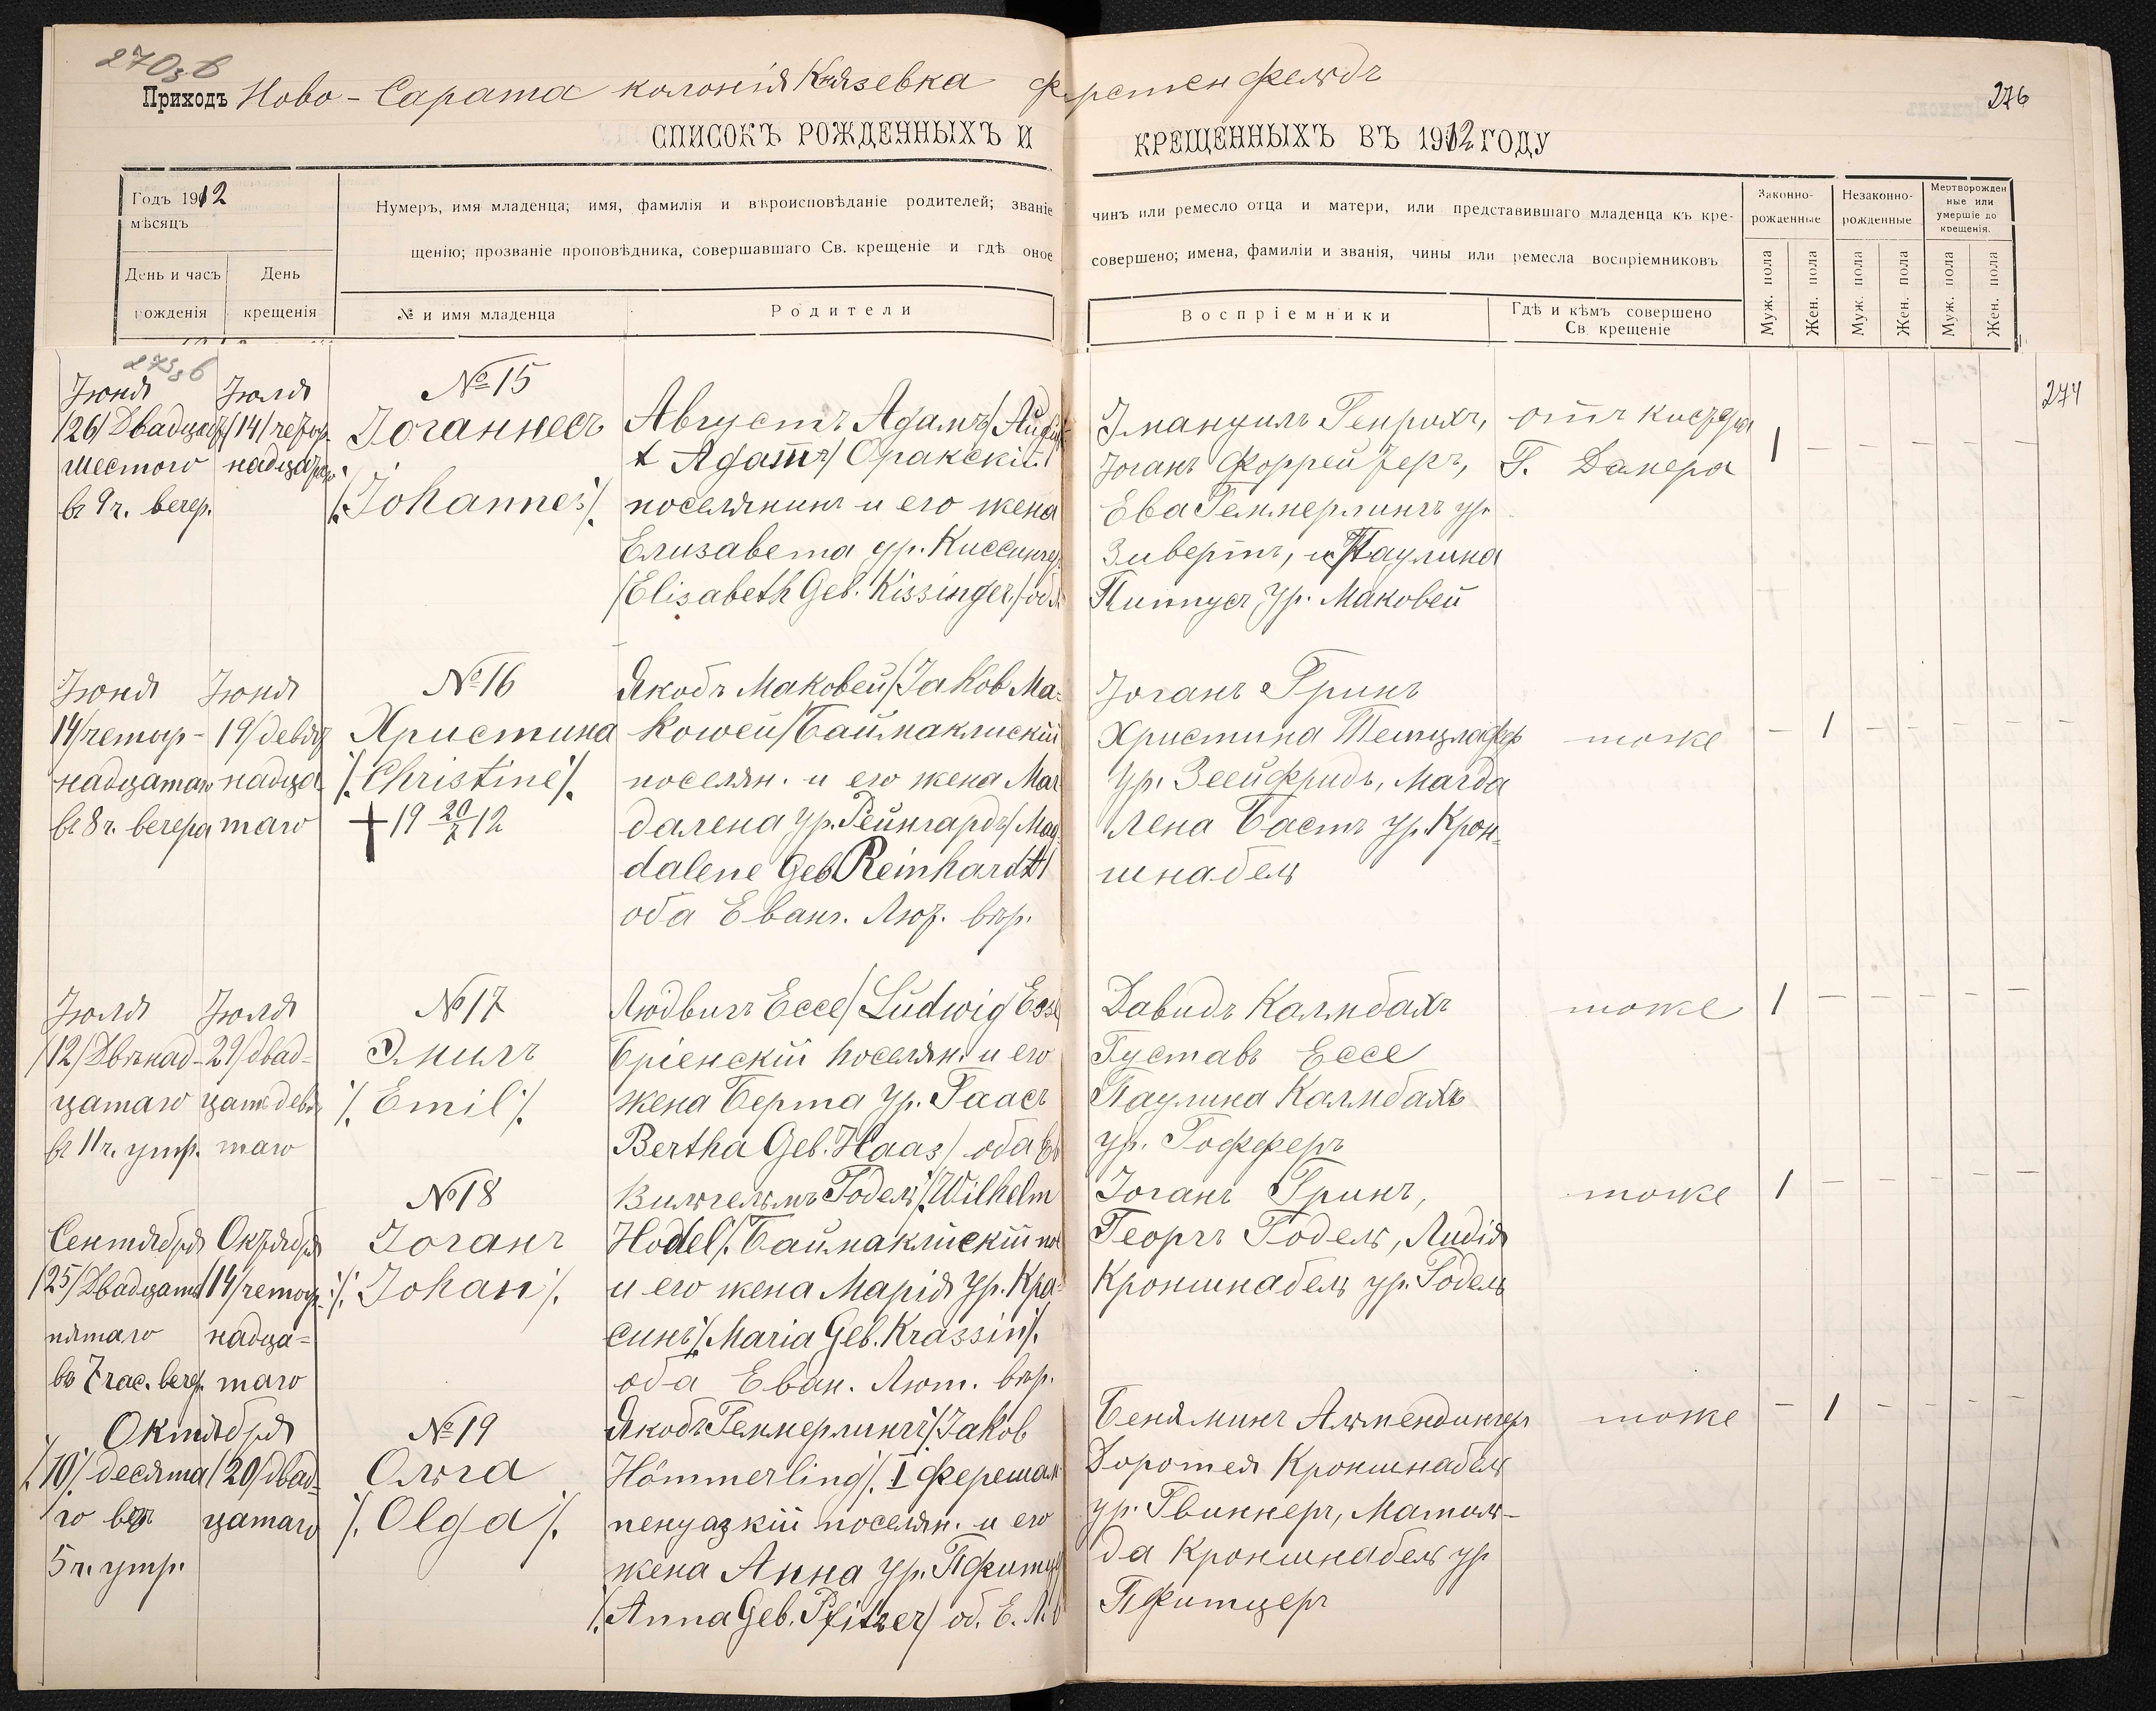 270 зв
Приходъ Ново-Сарата колонія Князевка Ферстенфельдъ
276
СПИСОКЪ РОЖДЕННЫХЪ И КРЕЩЕННЫХЪ ВЪ 1912 ГОДУ
Годъ 1912
мѣсяцъ
День и часъ
рожденія
День
крещенія
Нумеръ, имя младенца; имя, фамилія и вѣроисповѣданіе родителей; званіе
чинъ или ремесло отца и матери, или представившаго младенца къ кре-
щенію; прозваніе проповѣдника, совершавшаго Св. крещеніе и гдѣ оное
совершено; имена, фамиліи и званія, чины или ремесла воспріемниковъ
№ и имя младенца
Родители
Воспріемники
Гдѣ и кѣмъ совершено
Св. крещеніе
Законно-
рожденные
Незаконно-
рожденные
Мертворожден
ные или
умершіе до
крещенія.
Муж. пола
Жен. пола
Муж. пола
Жен. пола
Муж. пола
Жен. пола
274
Іюня
/26/ Двадцать
шестого
въ 9 ч. вечер.
Іюля
/14/ четыр
надцатаго
№ 15
Іоганнесъ
/Johannes/.
Августъ Адамъ /August
Adam/ Саракскій
поселянинъ и его жена
Елизавета ур. Киссингер
/Elisabeth Geb. Kissinger/ оба
Імануилъ Генрихъ,
Іоганъ Форрейтеръ,
Ева Геммерлингъ ур.
Зивертъ, и Паулина
Пиппусъ ур. Маковей
отъ кистера
Г. Данера
1 — — — — —
Іюня
14/четыр-
надцатаго
въ 8 ч. вечера
Іюня
19/девят
надца
таго
№ 16
Христина
/Christine/.
† 19 20/7 12
Якобъ Маковей /Jakob Ma-
kowei/ Баймаклискій
поселян. и его жена Маг
далена ур. Рейнгардъ /Mag
dalene Geb Reinhardt/
оба Еванг. Лют. вѣр.
Іоганъ Гринъ
Христина Тетцлафъ
ур. Зеейфридъ, Магда
лена Бастъ ур. Крон-
шнабель
тоже
— 1 — — — —
Іюля
/12/ Двѣнад-
цатаго
въ 11 ч. утр.
Іюля
29/двад-
цать девя
таго
№ 17
Эмилъ
/. Emil /.
Людвигъ Ессе /Ludwig Esse
Бріенскій поселян. и его
жена Берта ур. Гаасъ
Bertha Geb. Haas/ оба Ев
Давидъ Калмбахъ
Густавъ Ессе
Паулина Калмбахъ
ур. Гофферъ
тоже
1 — — — — —
Сентября
/25/ Двадцать
пятаго
въ 7 час. вечер.
Октября
14/четыр-
надца-
таго
№ 18
Іоганъ
/. Johan /.
Вильгельмъ Годель /. Wilhelm
Hodel/. Баймаклискій пос
и его жена Марія ур. Кра-
синъ /. Maria Geb. Krassin /.
оба Еван. Лют. вѣр.
Іоганъ Гринъ,
Георгъ Годель, Лидія
Кроншнабель ур. Годель
тоже
1 — — — — —
Октября
/10/. десята
го въ
5 ч. утр.
/20/ двад-
цатаго
№ 19
Олга
/. Olga /.
Якобъ Геммерлингъ /Jakob
Hömmerling/. I Ферешам
пенуазкій поселян. и его
жена Анна ур. Пфитцер
/. Anna Geb. Pfitzer/ об. Е. Л. в
Бенямикъ Алмендингеръ
Доротея Кроншнабель
ур. Гвиннеръ, Матиль-
да Кроншнабель ур
Пфитцеръ
тоже
— 1 — — — —